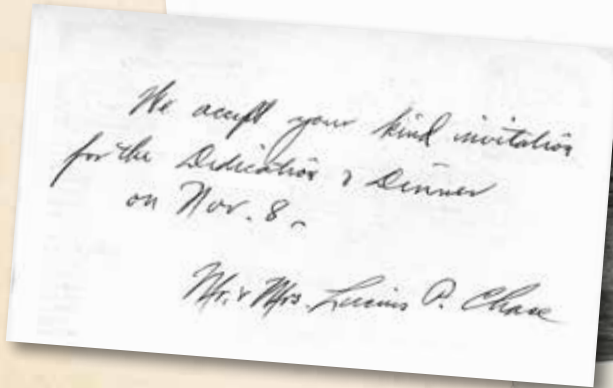 We accept your kind invitation
for the Dedication & Dinner
on Nov. 8.
Mr. & Mrs. Lucius P. Chase